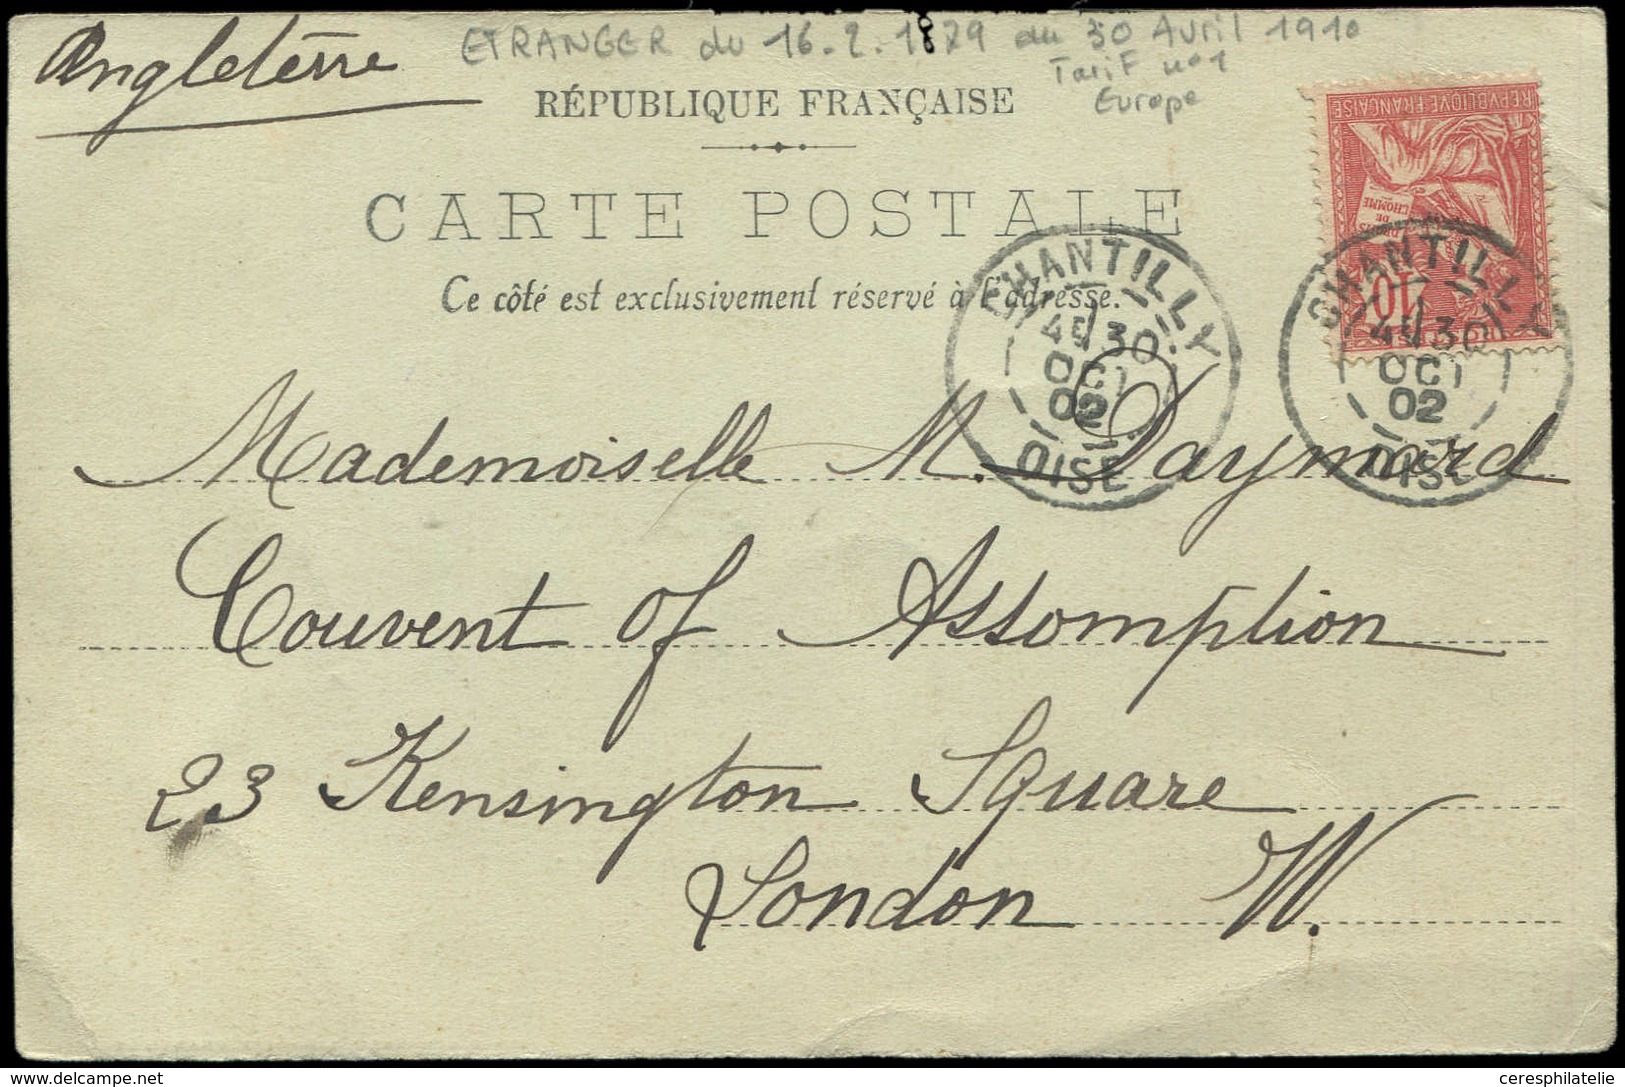 Angleterre
ETRANGER du 16.2.1879 au 30 Avril 1910
Tarif n°1
Europe
RÉPUBLIQUE FRANÇAISE
CARTE POSTALE
Ce côté est exclusivement réservé à l'adresse.
REPVBLIQVE FRANÇAISE
DROITS
DE
L'HOMME
10
CHANTILLY
4E 30
OCT
02
OISE
CHANTILLY
4E 30
OCT
02
OISE
Mademoiselle M. Daymard
Couvent of Assomption
23 Kensington Square
London W.
ceresphilatelie